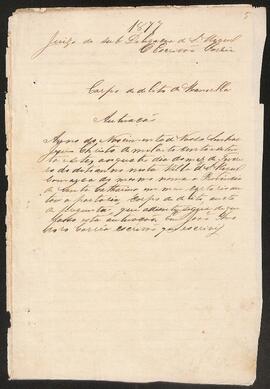 5
1877
Juizo da sub Delegacia de S. Miguel
O Escrivão Correia
Corpo de delicto de
Autuação
Anno do Nascimento de Nosso Senhor
Jesus Christo de mil oito centos e setenta
e sete, aos quatro dias do mez de
do dito anno nesta Villa de S. Miguel
Comarca do mesmo nome e Provincia
de Santa Catharina em meu cartorio
autoei a portaria, corpo de delicto e auto
de perguntas, que adiante segue, do que
faço esta autuação. Eu João
Correia escrivão que escrevi